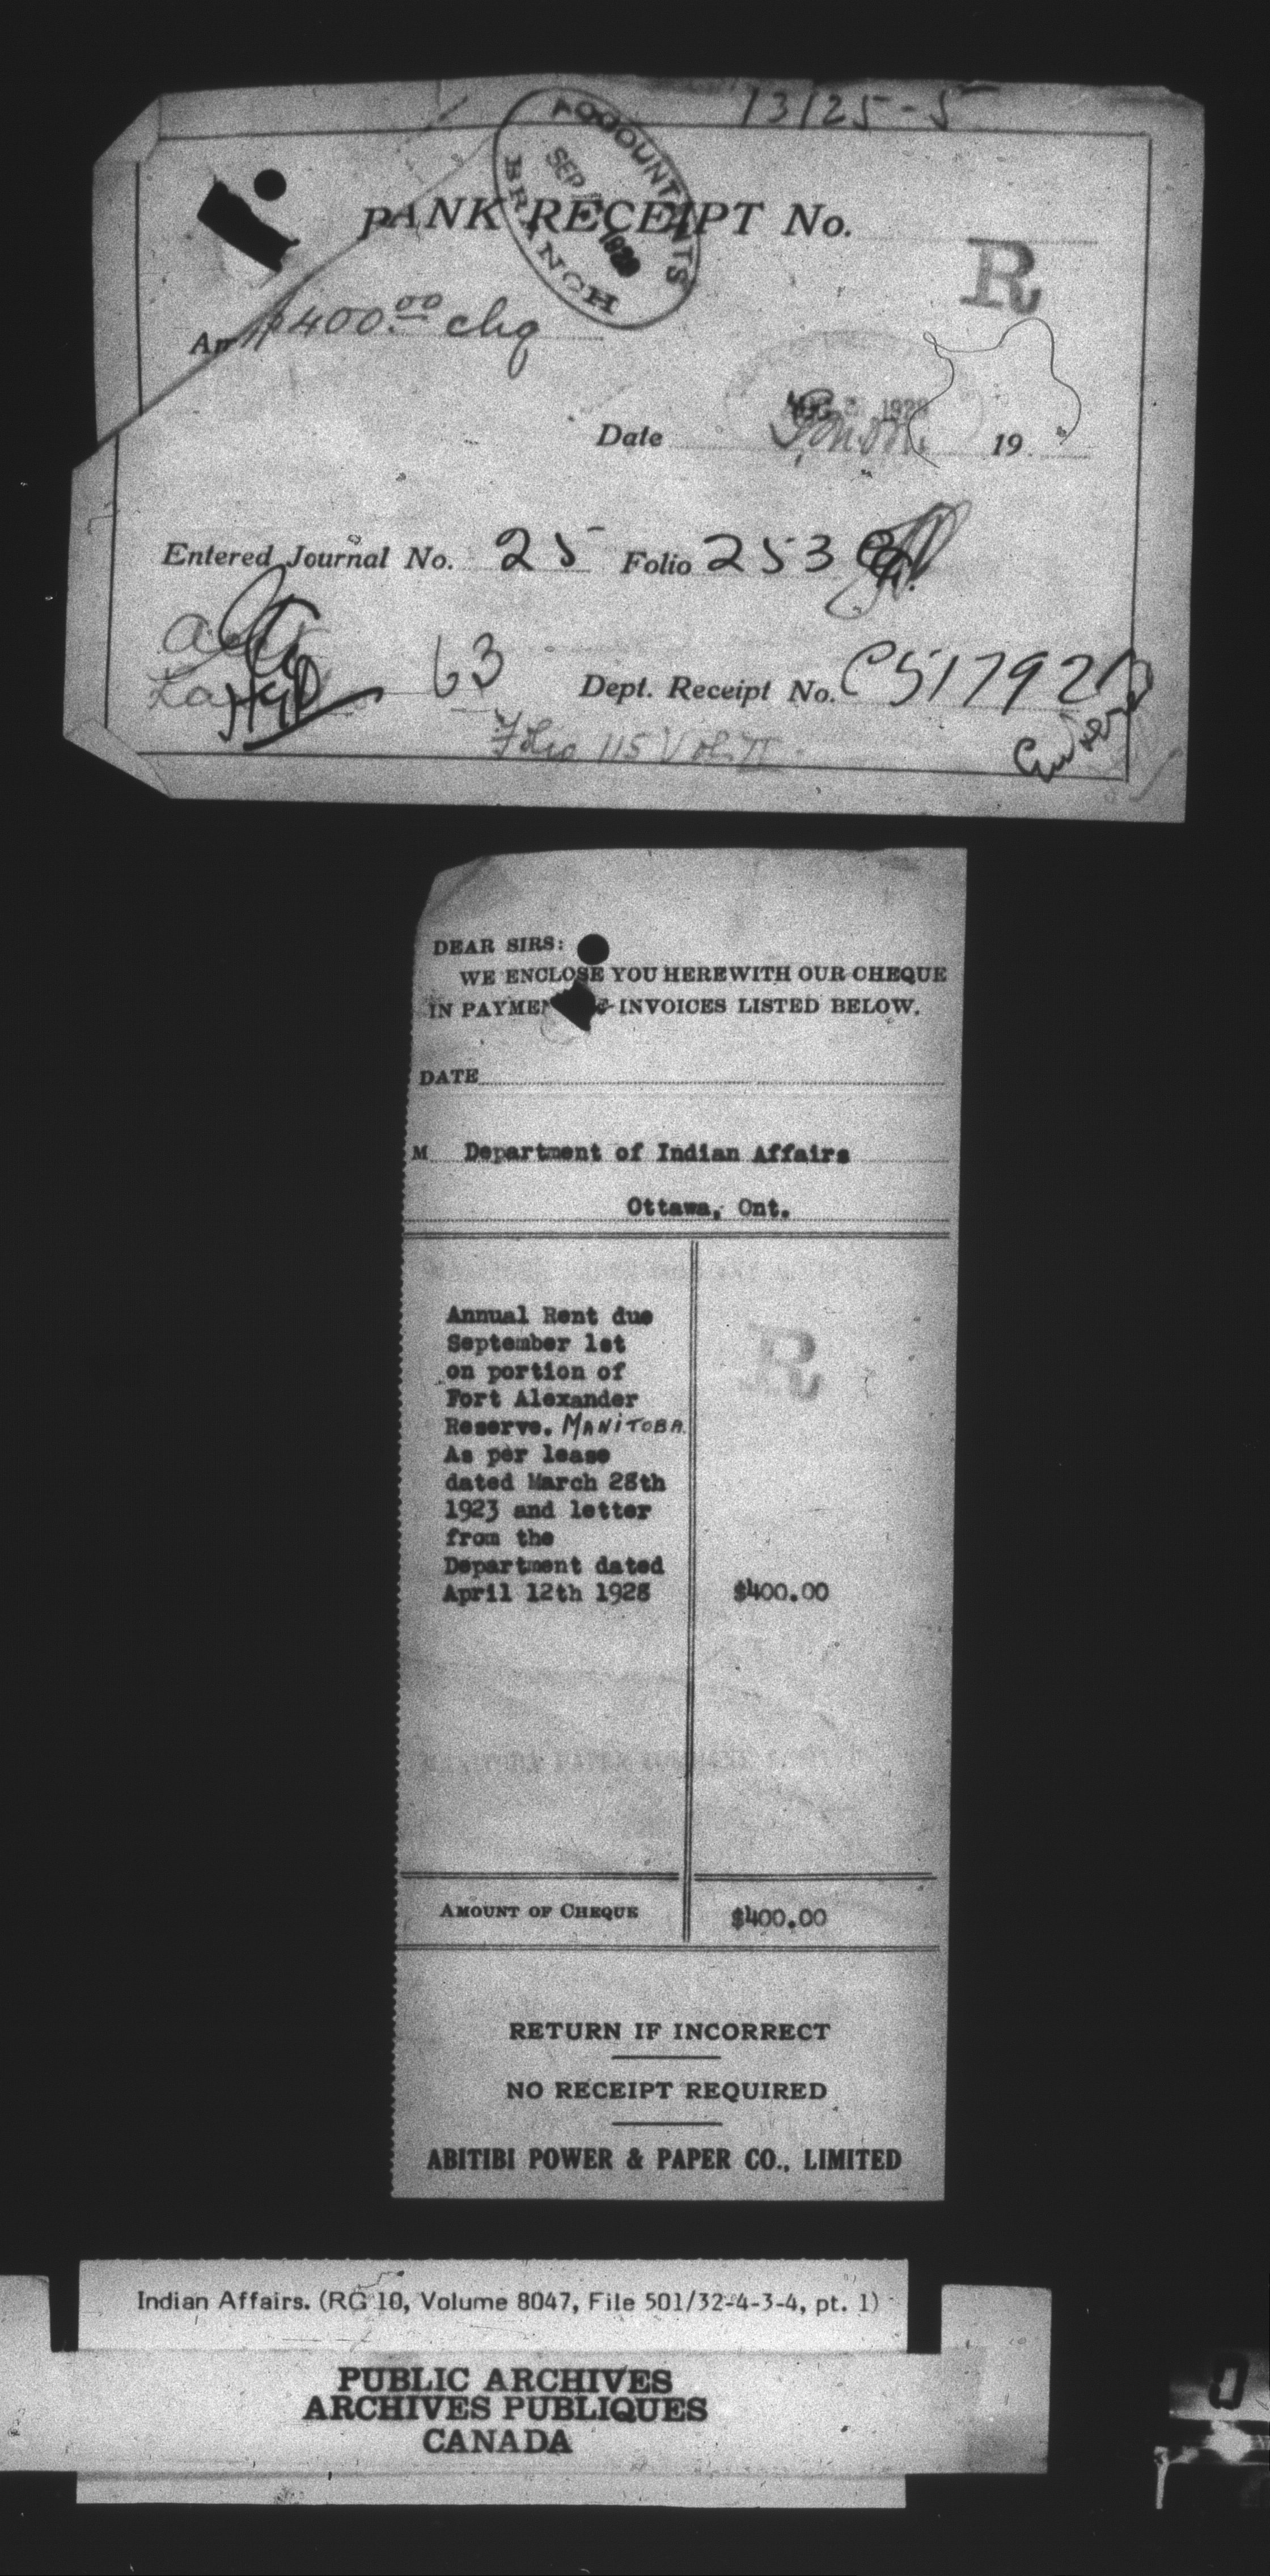 13125-5
ACCOUNTANTS
SEP
BRANCH
BANK RECEIPT No.
R
$400.00 chq
1928
Date 19
Entered Journal No. 25 Folio 253
63
Dept. Receipt No. C517921
Folio 115 Vol. II
DEAR SIRS:
WE ENCLOSE YOU HEREWITH OUR CHEQUE
IN PAYMENT OF INVOICES LISTED BELOW.
DATE
M Department of Indian Affairs
Ottawa, Ont.
Annual Rent due
September 1st
on portion of
Fort Alexander
Reserve. MANITOBA.
As per lease
dated March 28th
1923 and letter
from the
Department dated
April 12th 1928 $400.00
R
MANITOBA PAPER COMPANY
AMOUNT OF CHEQUE $400.00
RETURN IF INCORRECT
NO RECEIPT REQUIRED
ABITIBI POWER & PAPER CO., LIMITED
Indian Affairs. (RG 10, Volume 8047, File 501/32-4-3-4, pt. 1)
PUBLIC ARCHIVES
ARCHIVES PUBLIQUES
CANADA